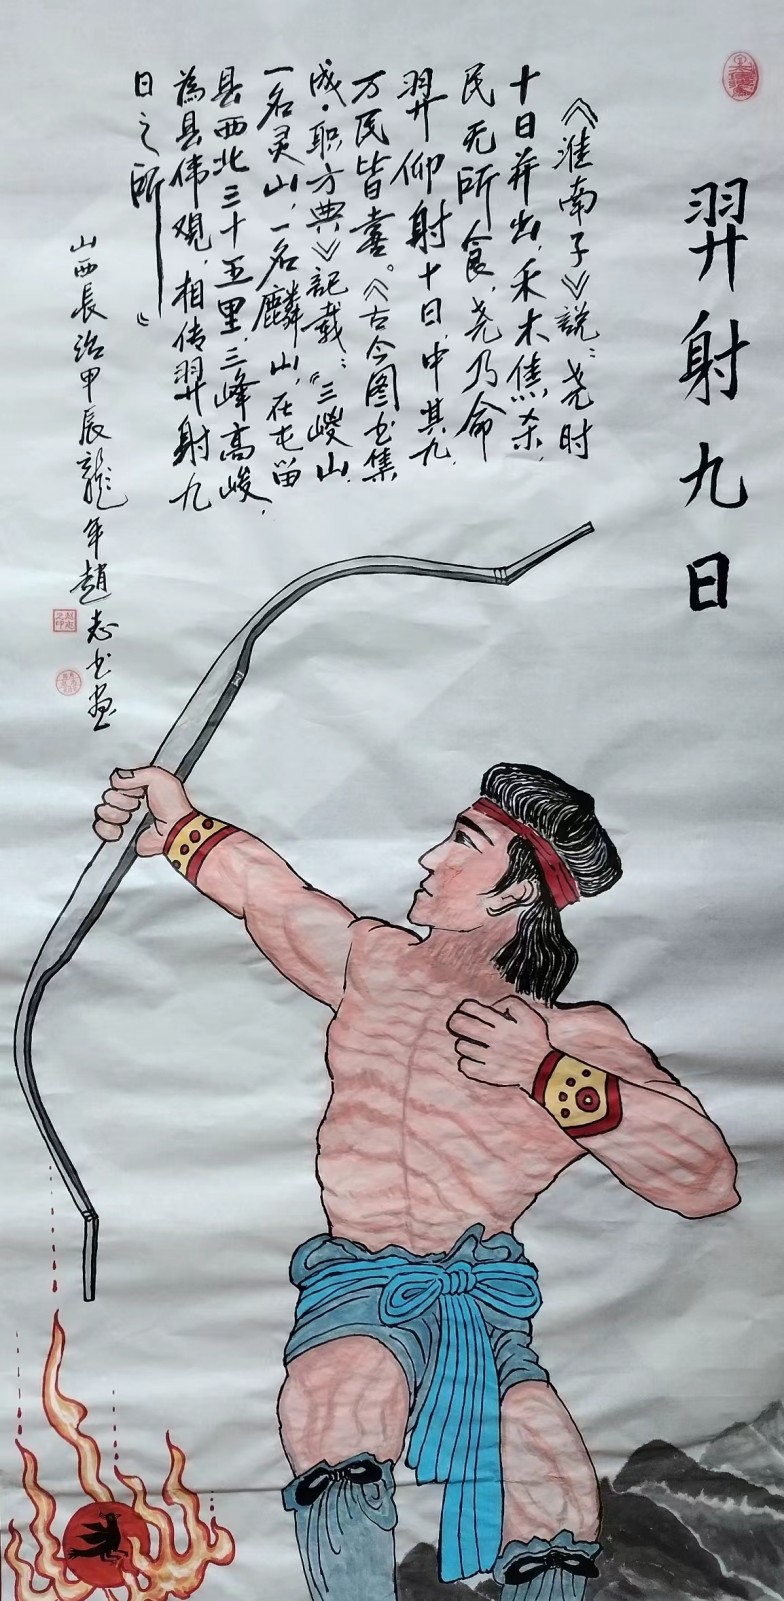 羿射九日
《淮南子》説：尧时
十日并出，禾木焦杀，
民无所食，尧乃命
羿仰射十日，中其九，
万民皆喜。《古今图书集
成·职方典》記载：“三嵕山，
一名灵山，一名麟山，在屯留
县西北三十五里，三峰高峻，
為县伟观，相传羿射九
日之所”
山西長治甲辰龍年趙志书畫